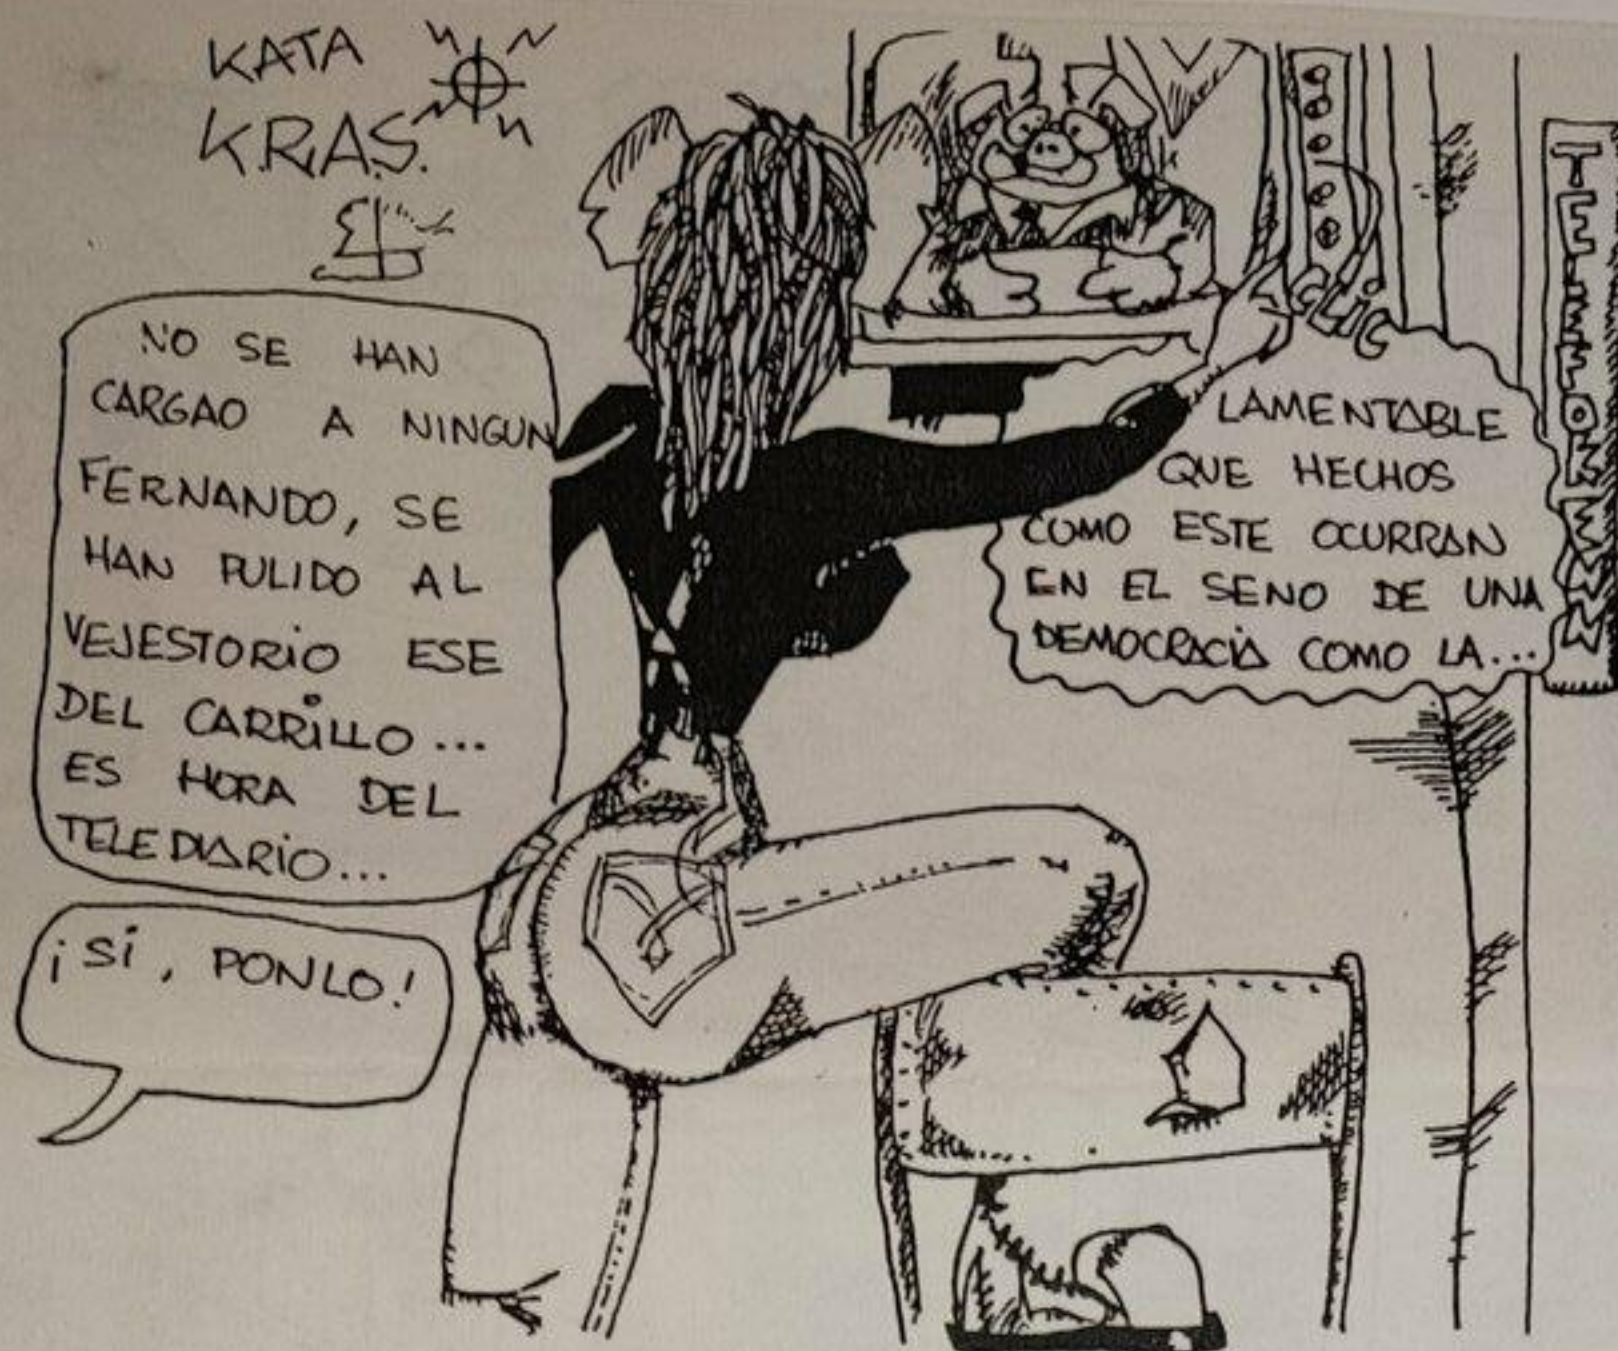 KATA
KRAS.
NO SE HAN
CARGAO A NINGUN
FERNANDO, SE
HAN PULIDO AL
VEJESTORIO ESE
DEL CARRILLO...
ES HORA DEL
TELEDIARIO...
¡SÍ, PONLO!
CLIC
LAMENTABLE
QUE HECHOS
COMO ESTE OCURRAN
EN EL SENO DE UNA
DEMOCRACIA COMO LA...